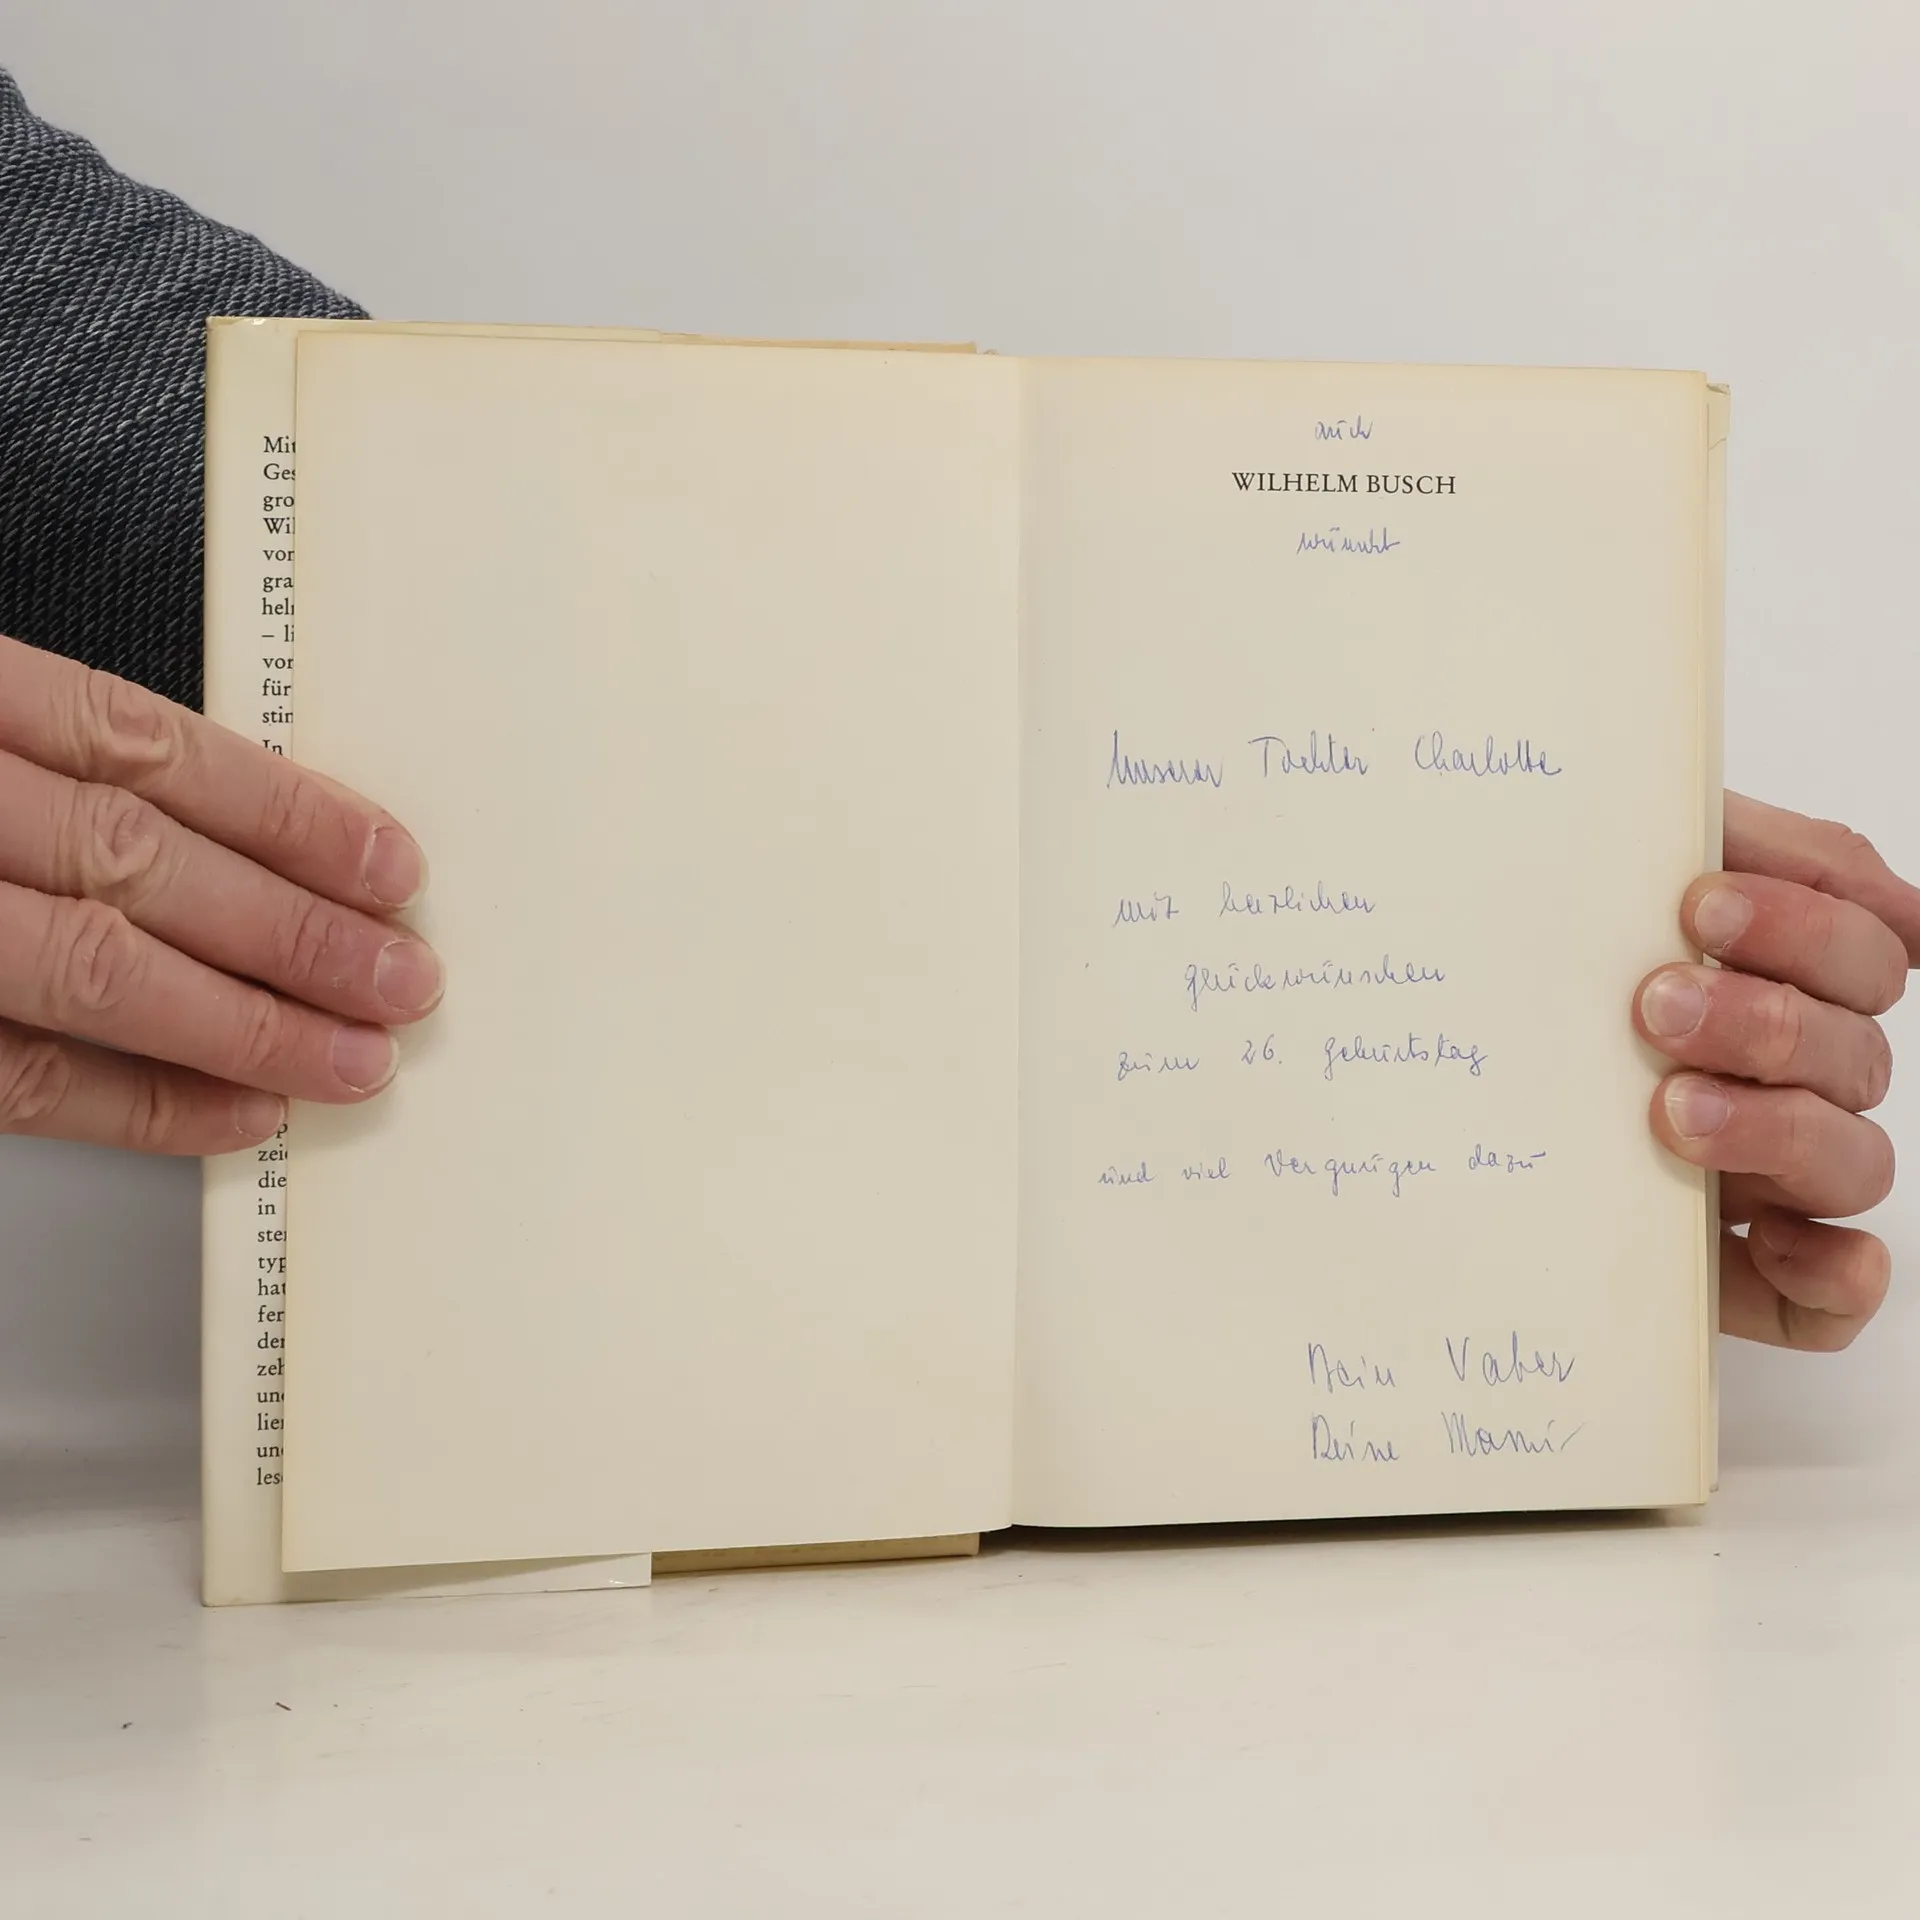 Mit
Ges
gro
Wil
von
gra
hel
– li
vor
für
stin
In
zei
die
in
ste
typ
hat
fer
der
zeh
und
lier
und
les
auch
WILHELM BUSCH
wünscht
Unserer Tochter Charlotte
mit herzlichen
Glückwünschen
zum 26. Geburtstag
und viel Vergnügen dazu
Dein Vater
Deine Mami